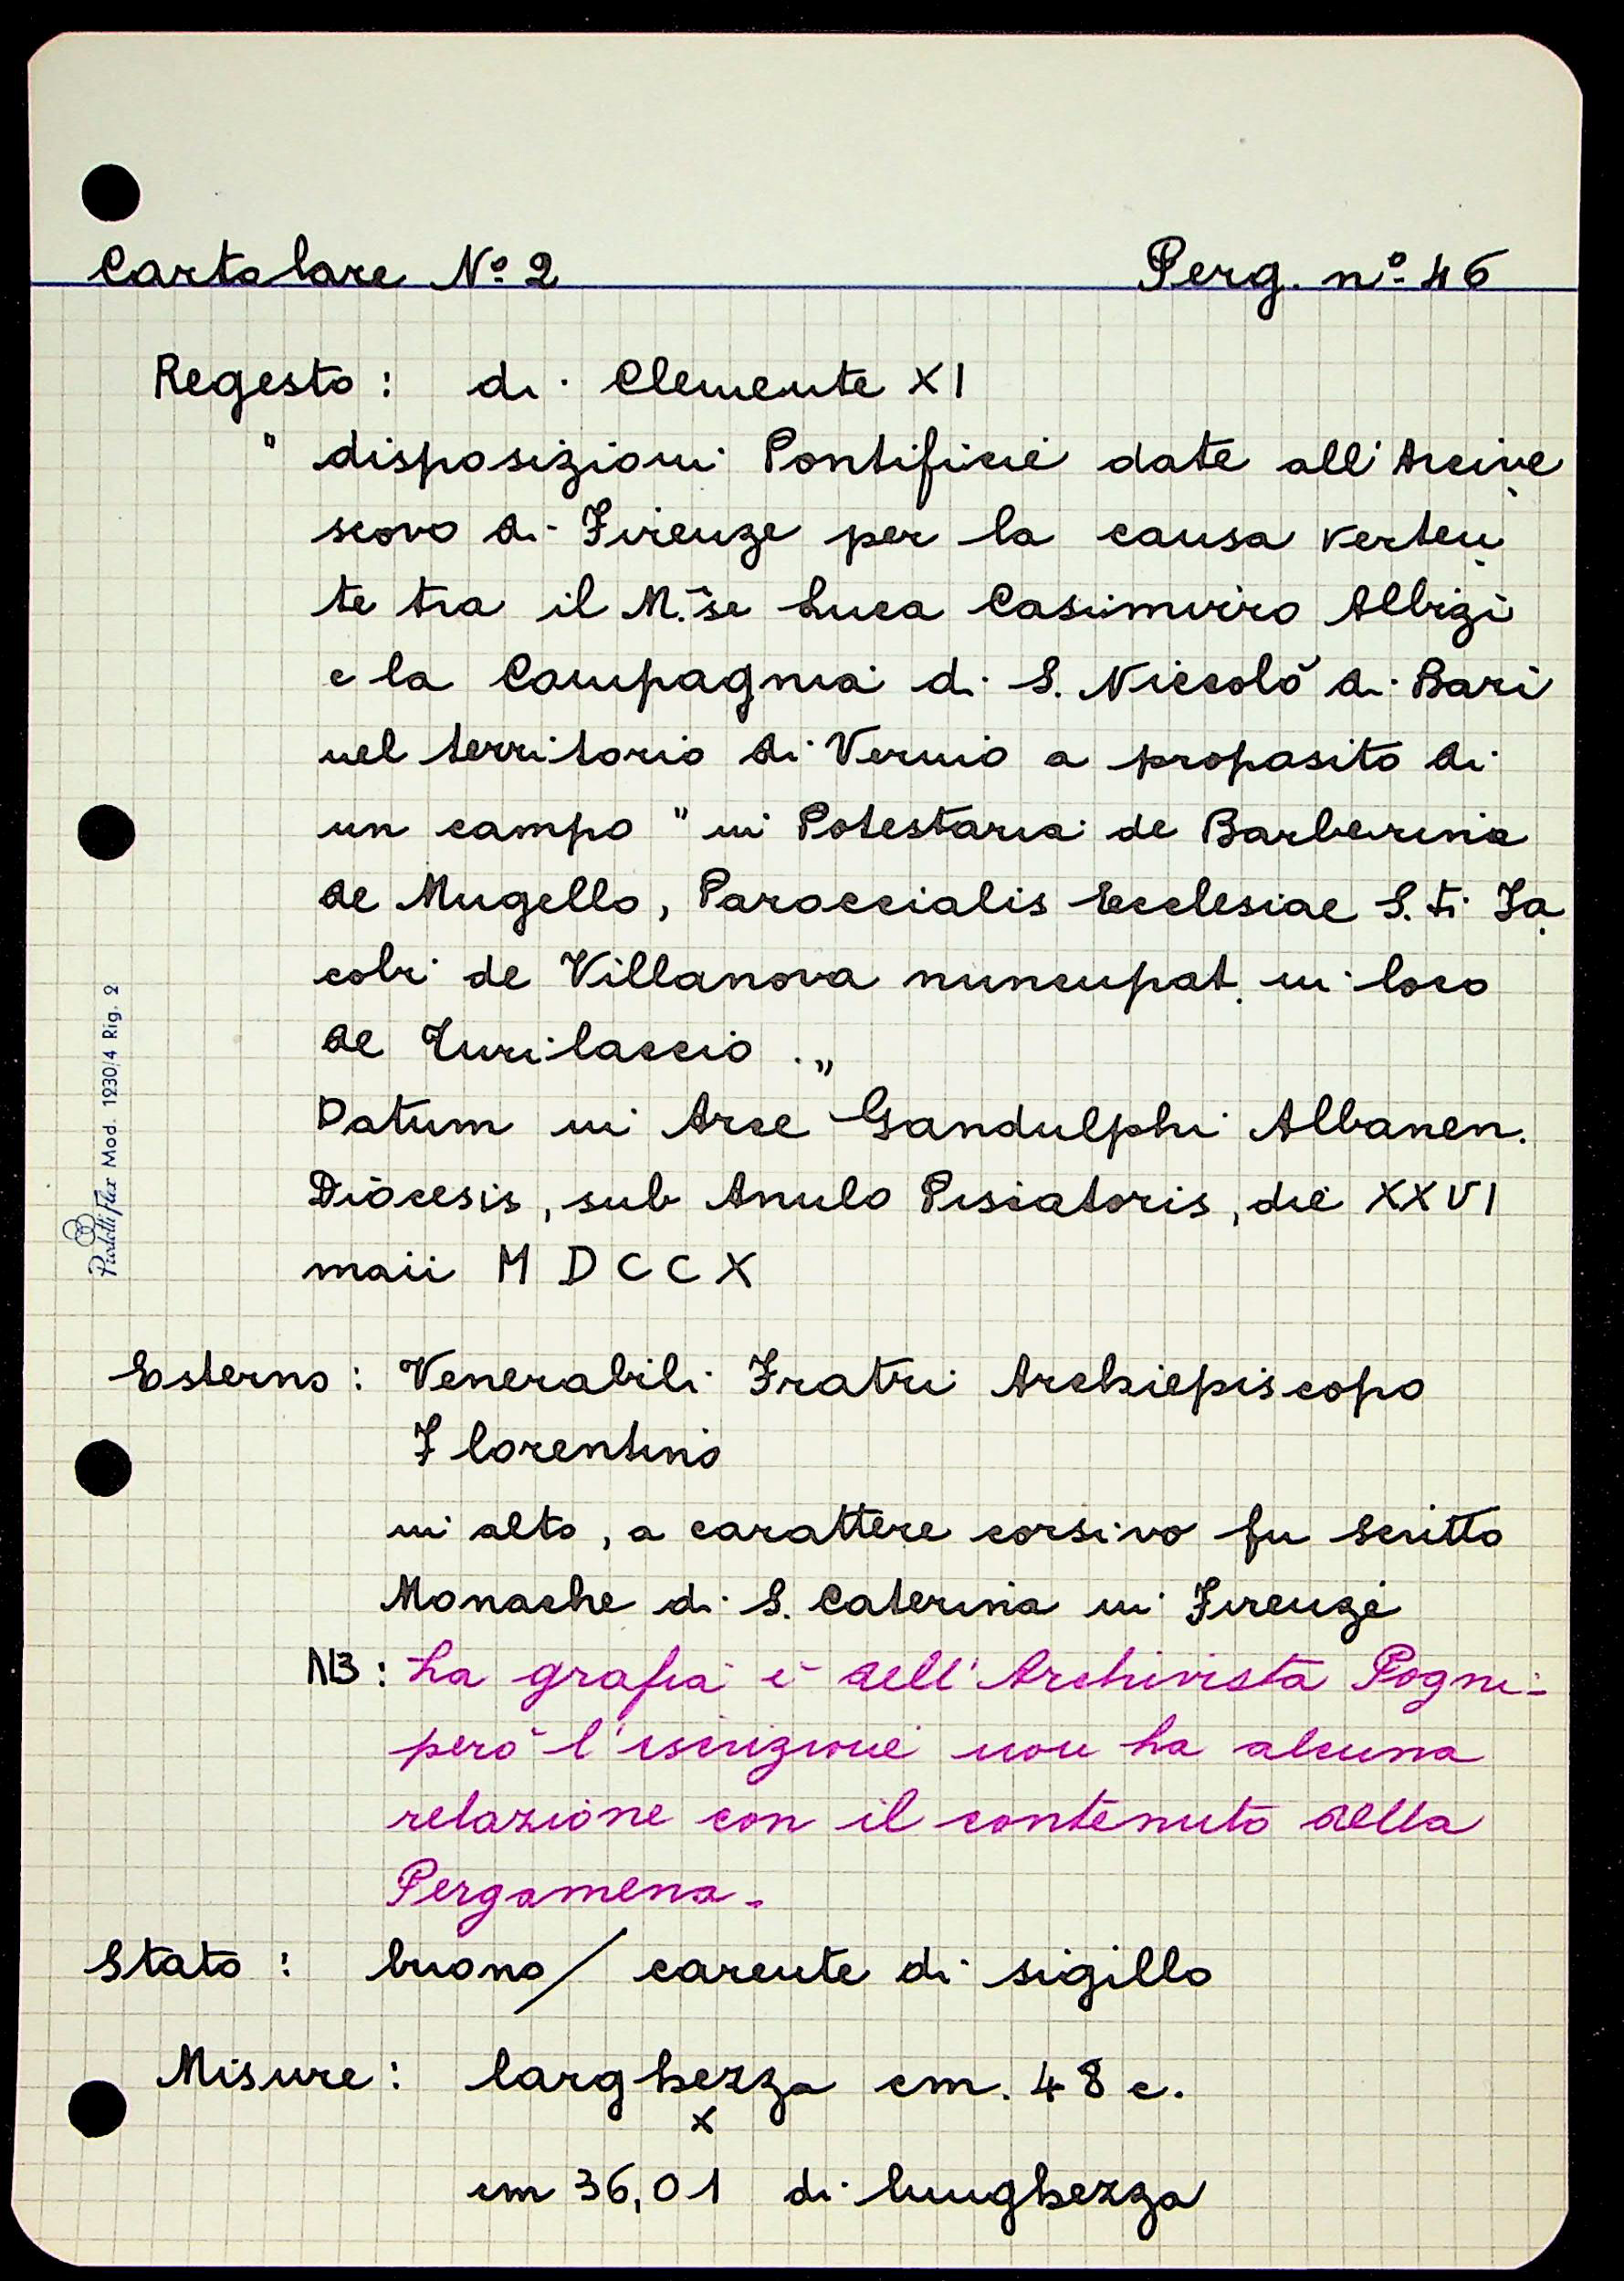 Cartolare Nº 2 Perg. nº 46
Regesto: di Clemente XI
" disposizioni Pontificie date all'Arcive
scovo di Firenze per la causa verten
te tra il M.se Luca Casimiro Albizi
e la Compagnia di S. Niccolò di Bari
nel territorio di Vernio a proposito di
un campo " in Potestaria de Barberino
de Mugello, Paroccialis Ecclesiae S.ti Ja
cobi de Villanova nuncupat. in loco
de Turilaccio ."
Datum in Arce Gandulphi Albanen.
Diocesis, sub Anulo Piscatoris, die XXVI
maii MDCCX
Esterno: Venerabili Fratri Archiepiscopo
Florentino
in alto, a carattere corsivo fu scritto
Monache di S. Caterina in Firenze
NB: La grafia è dell'Archivista Pogni-
però l'iscrizione non ha alcuna
relazione con il contenuto della
Pergamena.
Stato: buono/ carente di sigillo
Misure: larghezza cm. 48 c.
x
cm 36,01 di lunghezza
PedelliFlex Mod. 1230/4 Rig. 2